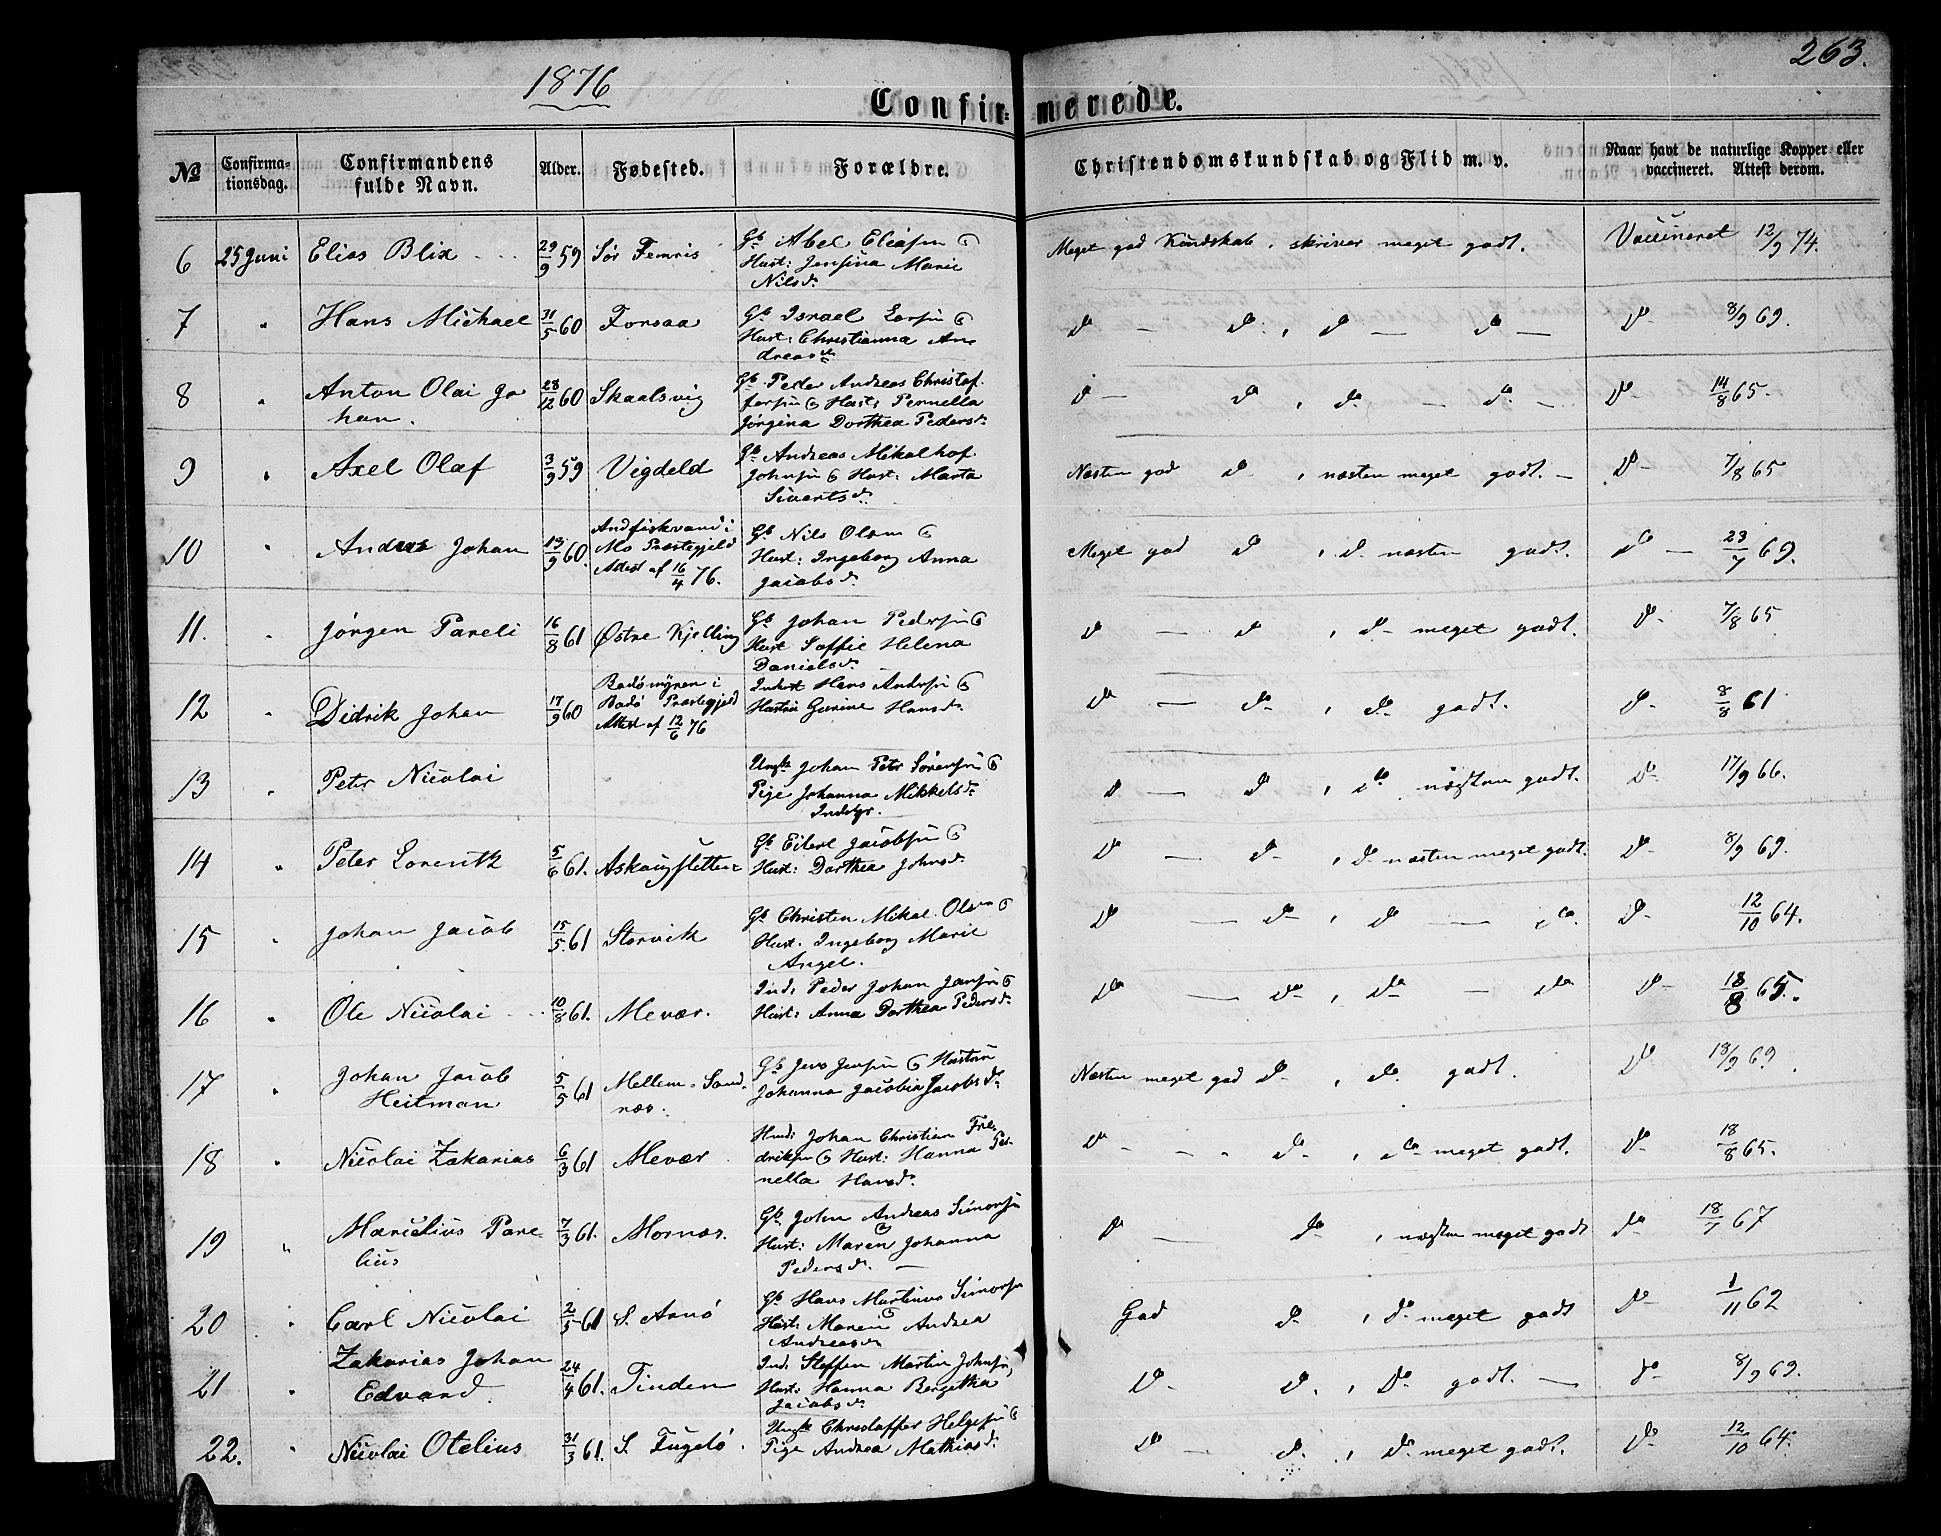 1876
263.
Confirmerede.
№ Confirmationsdag. Confirmandens fulde Navn. Alder. Fødested. Forældre. Christendomskundskab og Flid m. v. Naar havt de naturlige Kopper eller vaccineret. Attest derom.
6 25 Juni Elias Blix 29/9 59 Sør Femris Gb. Abel Eliasen &
Hust: Jensina Marie
Nilsd. Meget god Kundskab, skriver meget godt. Vaccineret 12/9 74.
7 " Hans Michael 31/5 60 Forsaa Gb. Israel Larsen &
Hust: Christianna An
dreasd. Do — Do, Do — Do — Do 8/9 69.
8 " Anton Olai Jo
han. 28/12 60 Skaalsvig Gb. Peder Andreas Christof
fersen & Hust: Pernella
Jørgina Dorthea Pedersd. Do — Do, Do — Do — Do 14/8 65.
9 " Axel Olaf 3/9 59 Vigdeld Gb. Andreas Mikal
Johnsen & Hust: Marta
Sivertsd. Næsten god Do, næsten meget godt. — Do 7/8 65
10 " Andreas Johan 13/9 60. Andfiskvand i
Mo Præstegjeld
Attest af 16/4 76. Gb. Nils Olsen &
Hust: Ingeborg Anna
Jacobsd. Meget god Do, Do næsten godt. Do — 23/7 69.
11. " Jørgen Pareli 16/8 61 Østre Kjelling Gb. Johan Pedersen &
Hust Soffie Helena
Danielsd. Do — Do, Do meget godt. Do 7/8 65
12 " Didrik Johan 17/9 60 Bodømyren i
Bodø Præstegjeld
Attest af 12/6 76 Inderst Hans Andersen &
Hustru Gurine Hansd. Do — Do, Do godt. Do 8/8 61
13 " Peter Nicolai Ungk. Johan Petr Sørensen &
Pige Johanna Mikkelsd.
Do — Do, Do næsten godt. Do 17/9 66.
14 " Peter Lorentz 5/6 61. Askaugsletten Gb. Eilert Jacobsen &
Hust: Dorthea Johnsd. Do — Do, Do næsten meget godt. Do 8/9 69.
15 " Johan Jacob 15/5 61 Storvik Gb. Christen Mikal Olsen &
Hust. Ingeborg Marie
Angel. Do — Do, Do — Do. Do 12/10 64.
16 " Ole Nicolai 10/8 61. Mevær. Ind: Peder Johan Jansen &
Hust: Anna Dorthea Pedersd. Do — Do, Do — Do Do 18/8 65.
17 " Johan Jacob
Heitman 5/5 61 Mellem-Sand
næs. Gb. Jens Jensen & Hustru
Johanna Jacobia Jacobsd. Næsten meget god Do, Do godt. Do 18/9 69.
18 " Nicolai Zakarias 6/3 61 Mevær Johan Christian Fre
driksen & Hust: Hanna Per
nella Hansd. Do - - Do, Do meget godt. Do 18/8 65.
19 " Marcelius Pare
lius 7/3 61. Mornæs. Gb. John Andreas Simonsen
& Hust: Maren Johanna
Pedersd. — Do — Do, næsten meget godt Do 18/7 67
20 " Carl Nicolai 2/5 61 S. Arnø Gb. Hans Martinus Simonsen
& Hust: Maren Andrea
Andreasd. God Do, Do meget godt Do 1/11 62
21 " Zakarias Johan
Edvard 24/4 61. Tinden Ind: Steffen Martin Johnsen,
Hust: Hanna Bergetha
Jacobsd. Do Do, Do godt. — Do 8/9 69.
22. " Nicolai Otelius 31/3 61. S. Fugelø. Ungk. Christoffer Helgesen &
Pige Andrea Mathiasd. Do — Do, Do meget godt. Do 12/10 64.